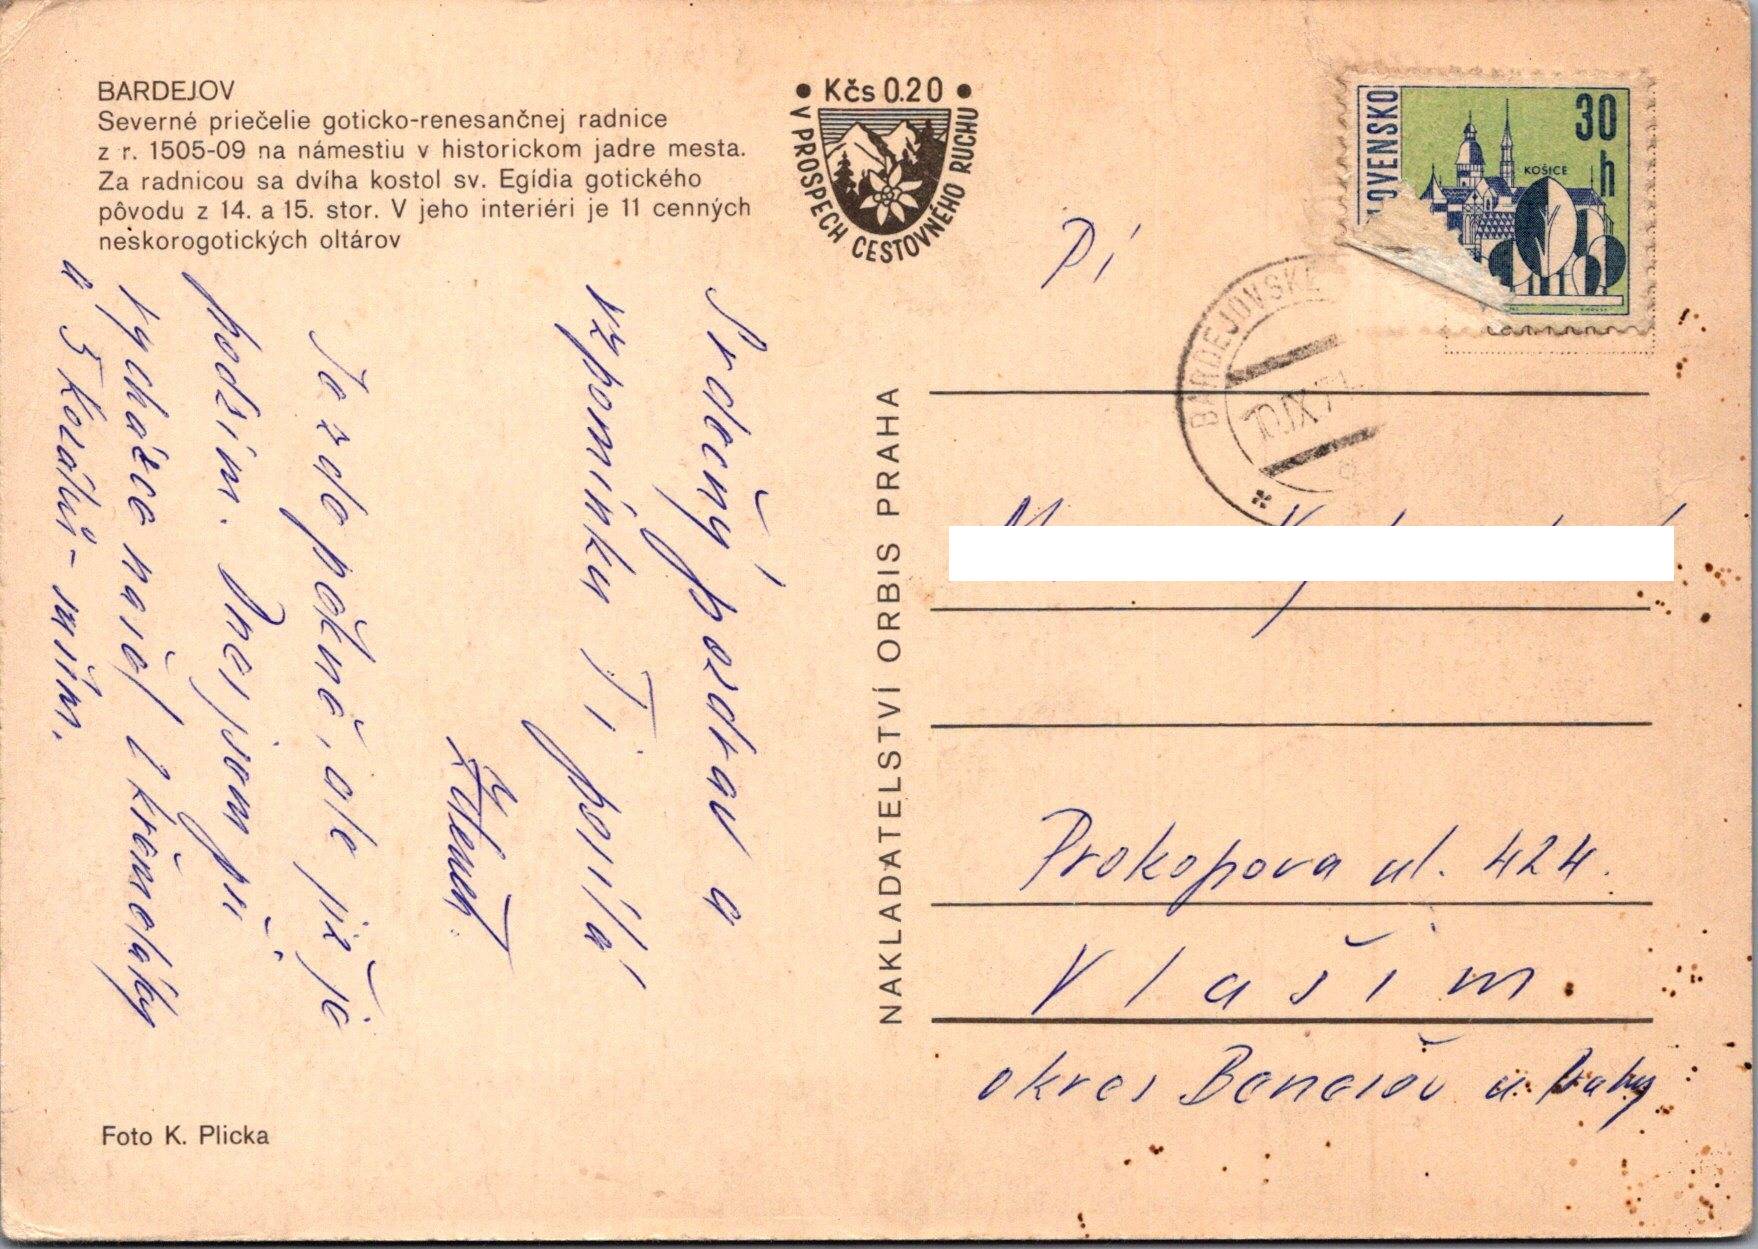 BARDEJOV
Severné priečelie goticko-renesančnej radnice
z r. 1505-09 na námestiu v historickom jadre mesta.
Za radnicou sa dvíha kostol sv. Egídia gotického
pôvodu z 14. a 15. stor. V jeho interiéri je 11 cenných
neskorogotických oltárov
• Kčs 0.20 •
V PROSPECH CESTOVNÉHO RUCHU
Srdečný pozdrav a
vzpomínku Ti posílá
Zdeněk.
Je zde pěkně, ale již je
podzim. Dnes jsem při
vycházce našel 2 křemeláky
a 5 kozáků - suším.
Foto K. Plicka
NAKLADATELSTVÍ ORBIS PRAHA
OVENSKO
30
h
KOŠICE
BARDEJOVSKÉ
10.IX.7
Pí
Prokopova ul. 424.
Vlašim
okres Benešov u Prahy